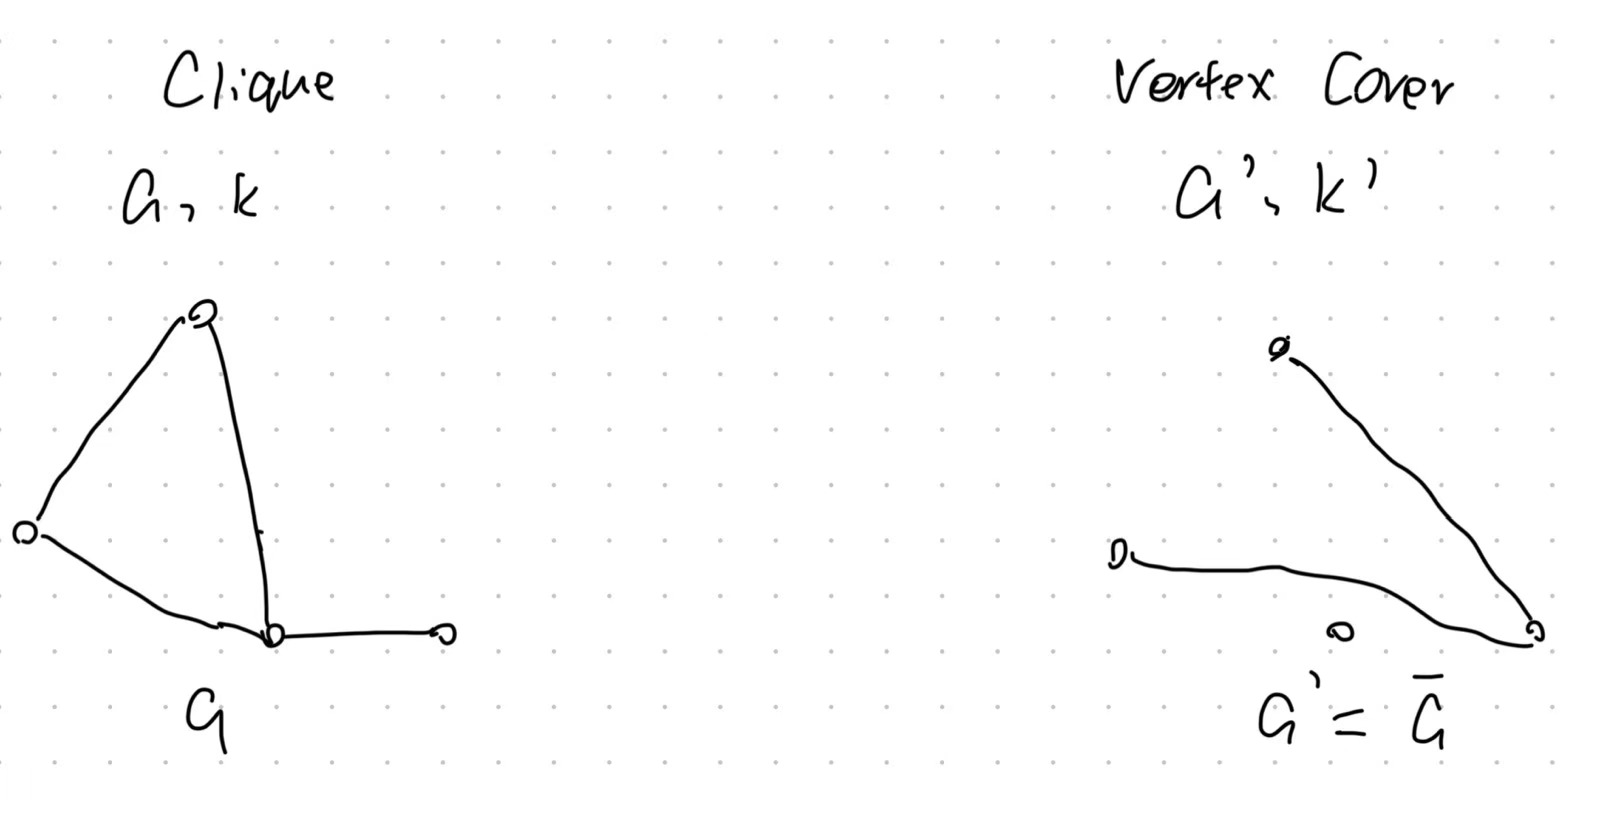 Clique
G, k
G
Vertex Cover
G', k'
G' = G̅